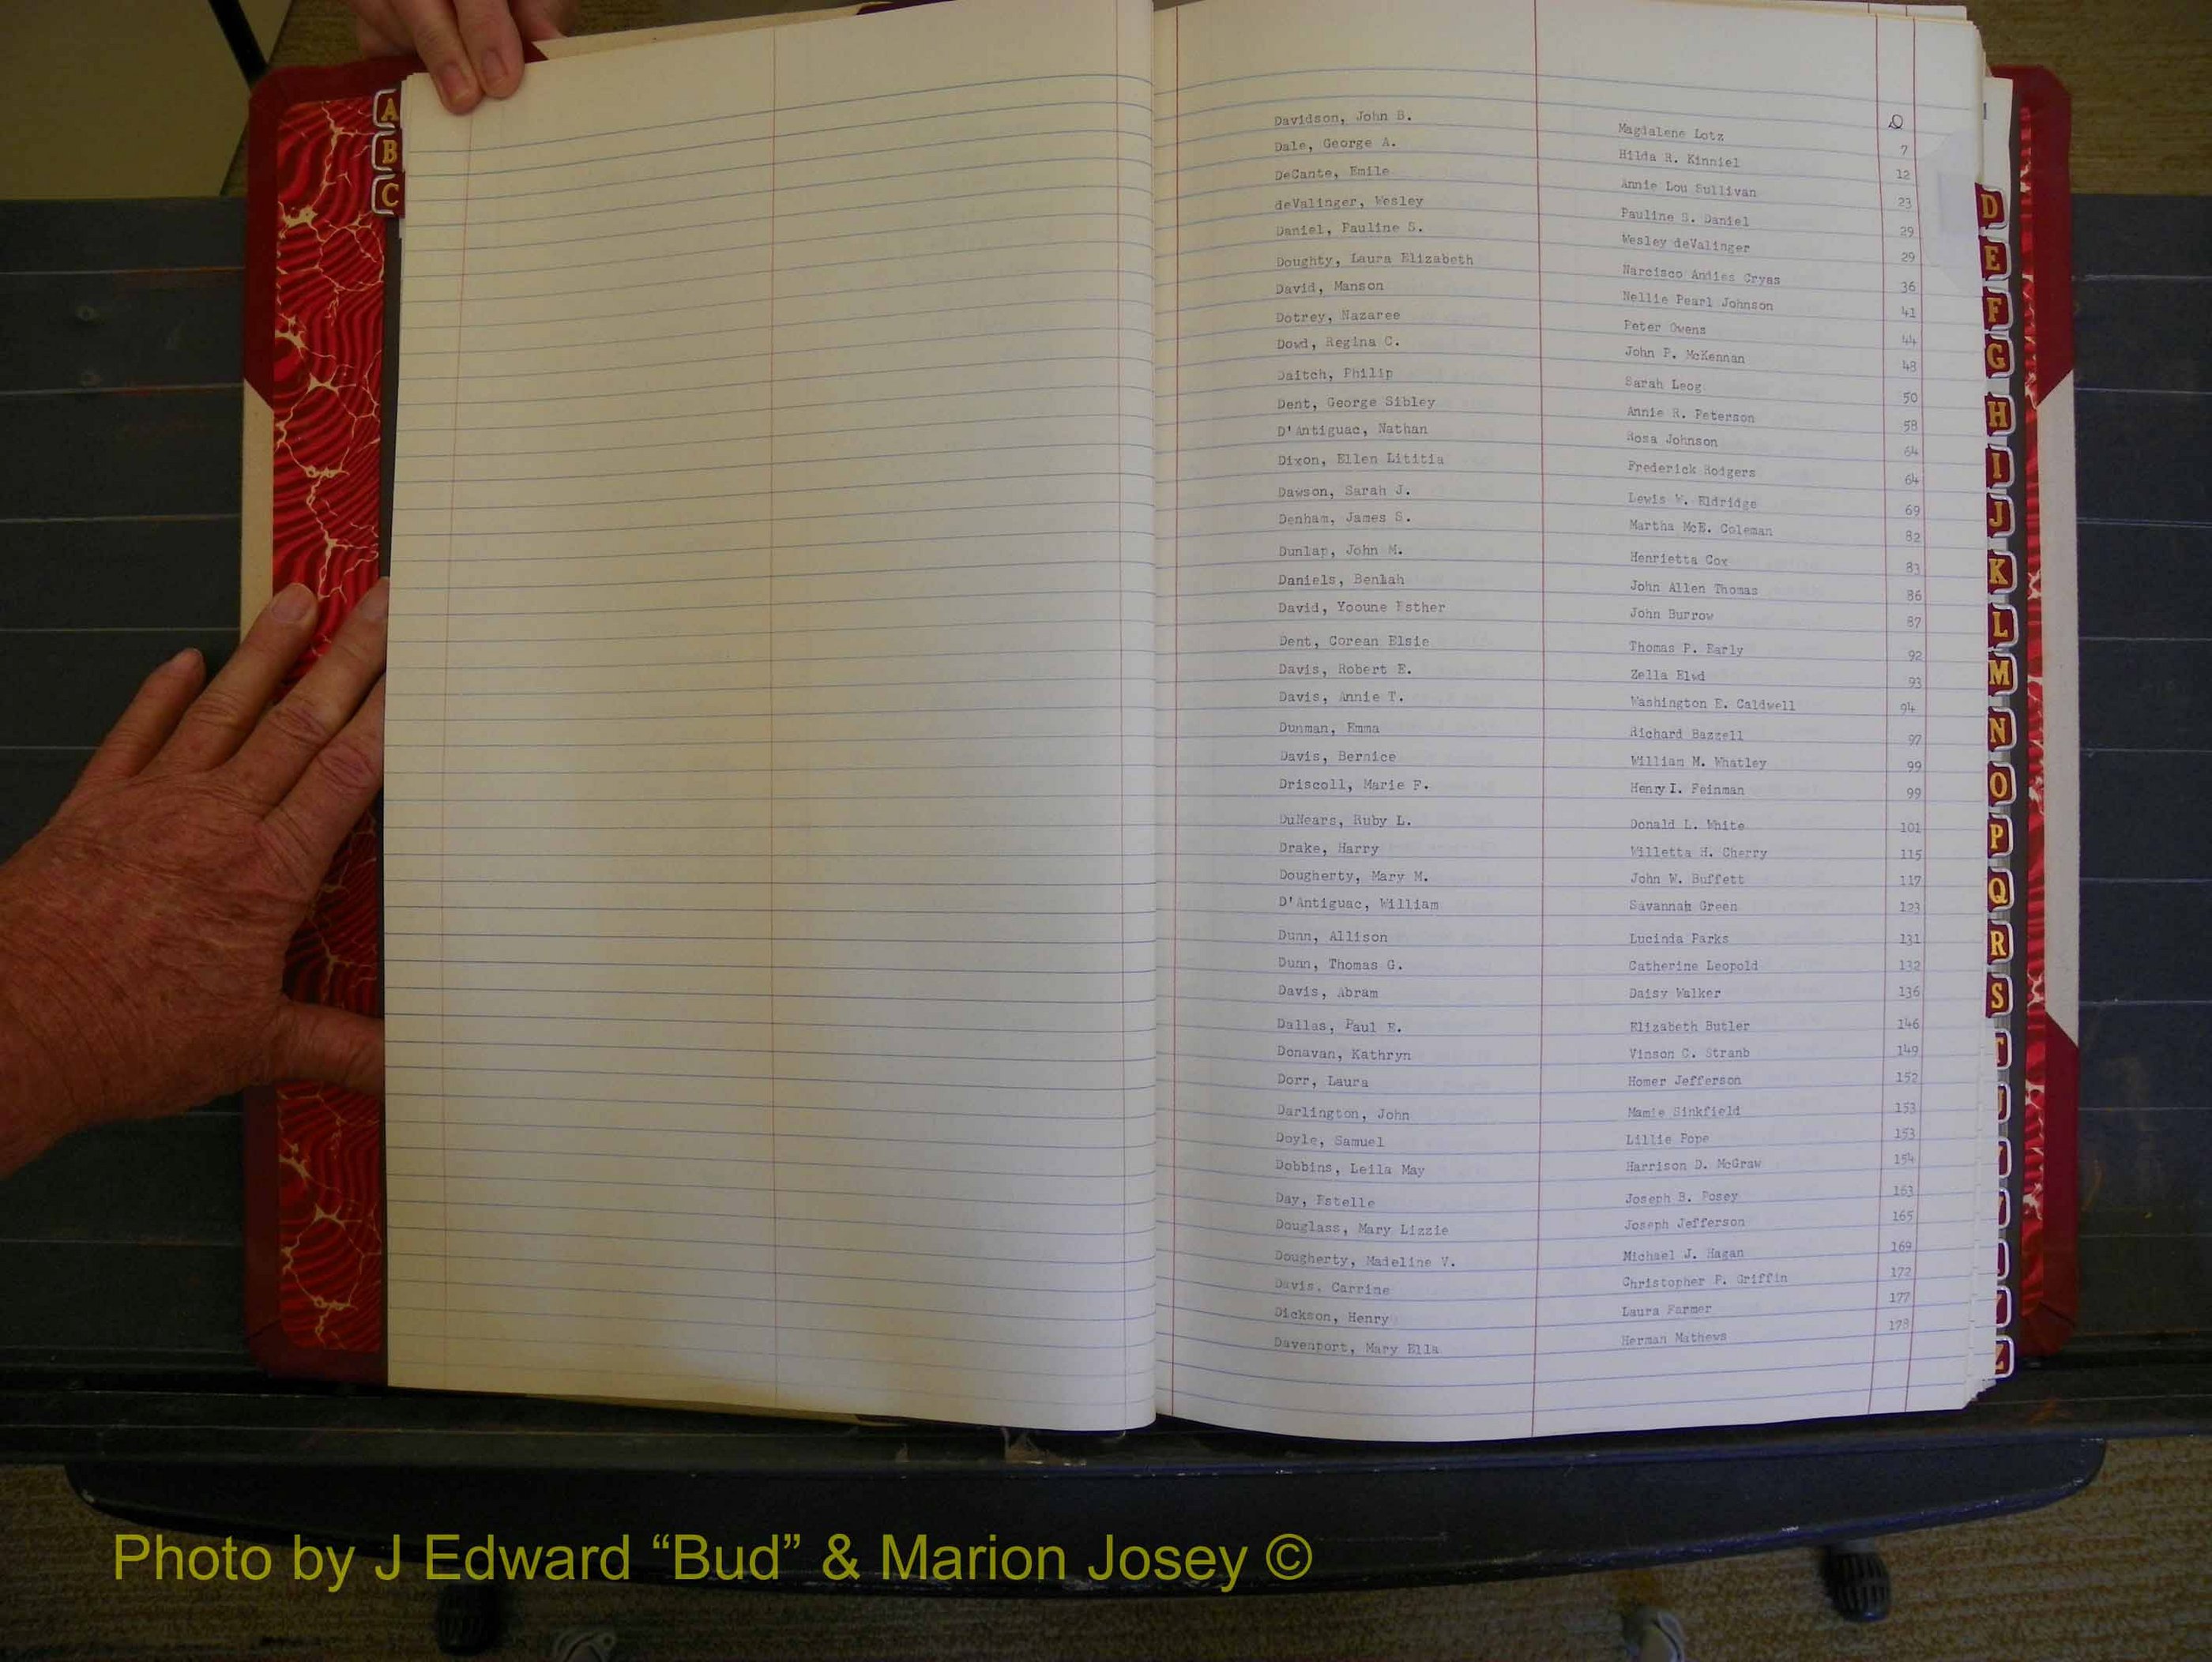 A
B
C
D
Davidson, John B. Magdalene Lotz 7
Dale, George A. Hilda R. Kinniel 12
DeCante, Emile Annie Lou Sullivan 23
deValinger, Wesley Pauline S. Daniel 29
Daniel, Pauline S. Wesley deValinger 29
Doughty, Laura Elizabeth Narcisco Andies Cryas 36
David, Manson Nellie Pearl Johnson 41
Dotrey, Nazaree Peter Owens 44
Dowd, Regina C. John P. McKennan 48
Daitch, Philip Sarah Leog 50
Dent, George Sibley Annie R. Peterson 58
D'Antiguac, Nathan Rosa Johnson 64
Dixon, Ellen Lititia Frederick Rodgers 64
Dawson, Sarah J. Lewis W. Eldridge 69
Denham, James S. Martha McE. Coleman 82
Dunlap, John M. Henrietta Cox 83
Daniels, Benlah John Allen Thomas 86
David, Yooune Esther John Burrow 87
Dent, Corean Elsie Thomas P. Early 92
Davis, Robert E. Zella Elwd 93
Davis, Annie T. Washington E. Caldwell 94
Dunman, Emma Richard Bazzell 97
Davis, Bernice William M. Whatley 99
Driscoll, Marie F. Henry I. Feinman 99
DuNears, Ruby L. Donald L. White 101
Drake, Harry Willetta H. Cherry 115
Dougherty, Mary M. John W. Buffett 117
D'Antiguac, William Savannah Green 123
Dunn, Allison Lucinda Parks 131
Dunn, Thomas G. Catherine Leopold 132
Davis, Abram Daisy Walker 136
Dallas, Paul E. Elizabeth Butler 146
Donavan, Kathryn Vinson C. Stranb 149
Dorr, Laura Homer Jefferson 152
Darlington, John Mamie Sinkfield 153
Doyle, Samuel Lillie Pope 153
Dobbins, Leila May Harrison D. McGraw 154
Day, Estelle Joseph B. Posey 163
Douglass, Mary Lizzie Joseph Jefferson 165
Dougherty, Madeline V. Michael J. Hagan 169
Davis, Carrine Christopher P. Griffin 172
Dickson, Henry Laura Farmer 177
Davenport, Mary Ella Herman Mathews 178
D
E
F
G
H
I
J
K
L
M
N
O
P
Q
R
S
T
Z
Photo by J Edward “Bud” & Marion Josey ©